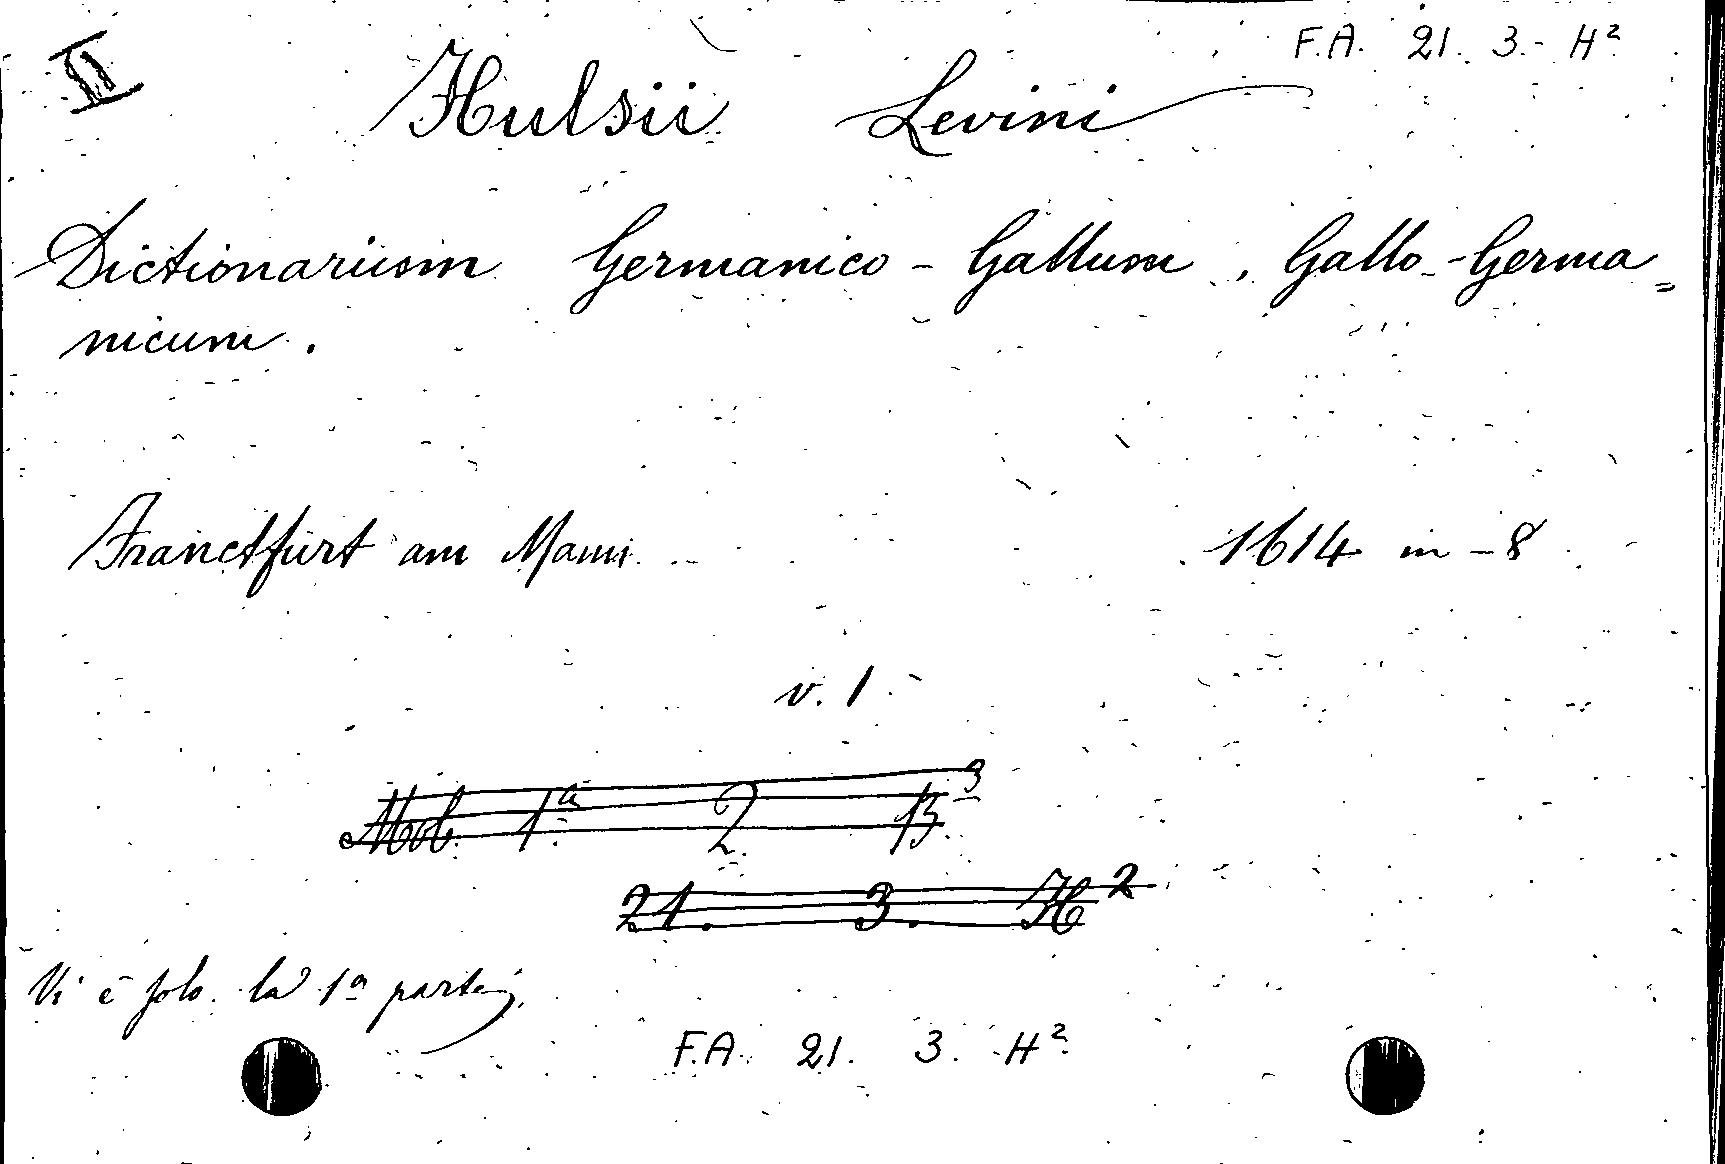 II F.A. 21. 3.- H²
Hulsii Levini
Dictionarium Germanico - Gallum, Gallo-Germa=
nicum.
Franctfurt am Mann 1614 in - 8
v. 1
Mob. 1ª 2 13³
21. 3. H²
Vi è solo la 1ª parte
F.A. 21. 3. H²